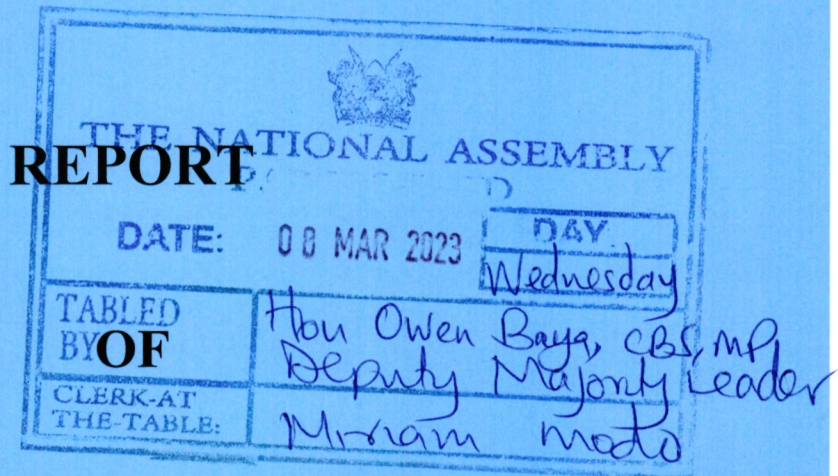 THE NATIONAL ASSEMBLY
REPORT
DATE: 08 MAR 2023 DAY
Wednesday
TABLED
BY
OF
Hon Owen Baya, CBS, MP,
Deputy Majority Leader
CLERK-AT
THE-TABLE:
Miriam Modo